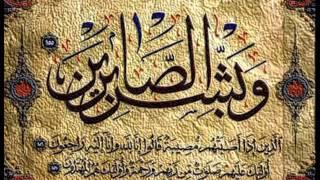 وَبَشِّرِ الصَّابِرِينَ
الَّذِينَ إِذَا أَصَابَتْهُمْ مُصِيبَةٌ قَالُوا إِنَّا لِلَّهِ وَإِنَّا إِلَيْهِ رَاجِعُونَ
أُولَئِكَ عَلَيْهِمْ صَلَوَاتٌ مِنْ رَبِّهِمْ وَرَحْمَةٌ وَأُولَئِكَ هُمُ الْمُهْتَدُونَ